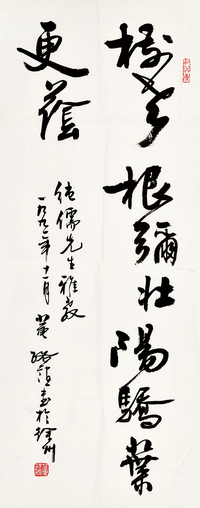 樹老根彌壯陽驕葉
更蔭
儒先生雅教
一九九二年十一月書於徐州